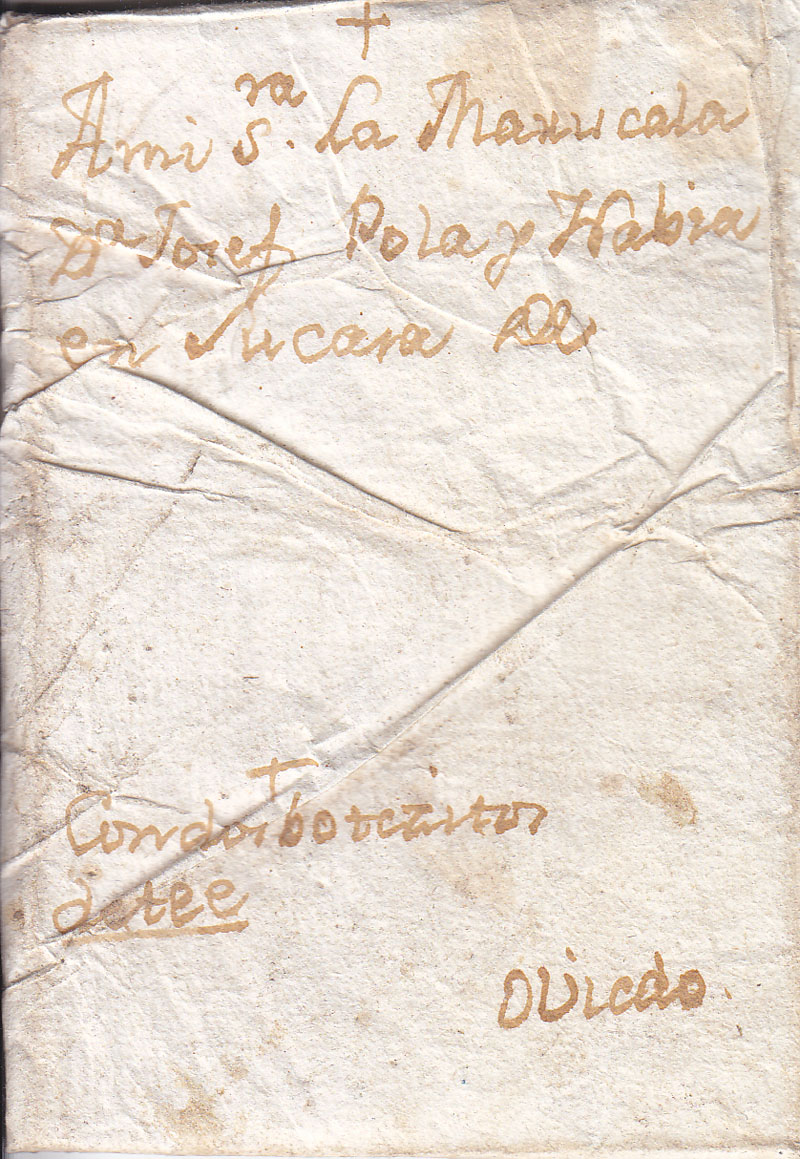 +
Ami S.ra La Mariscala
Dn Josef Pola y Navia
en su casa
+
Con dos botesitos
de tee
Oviedo.